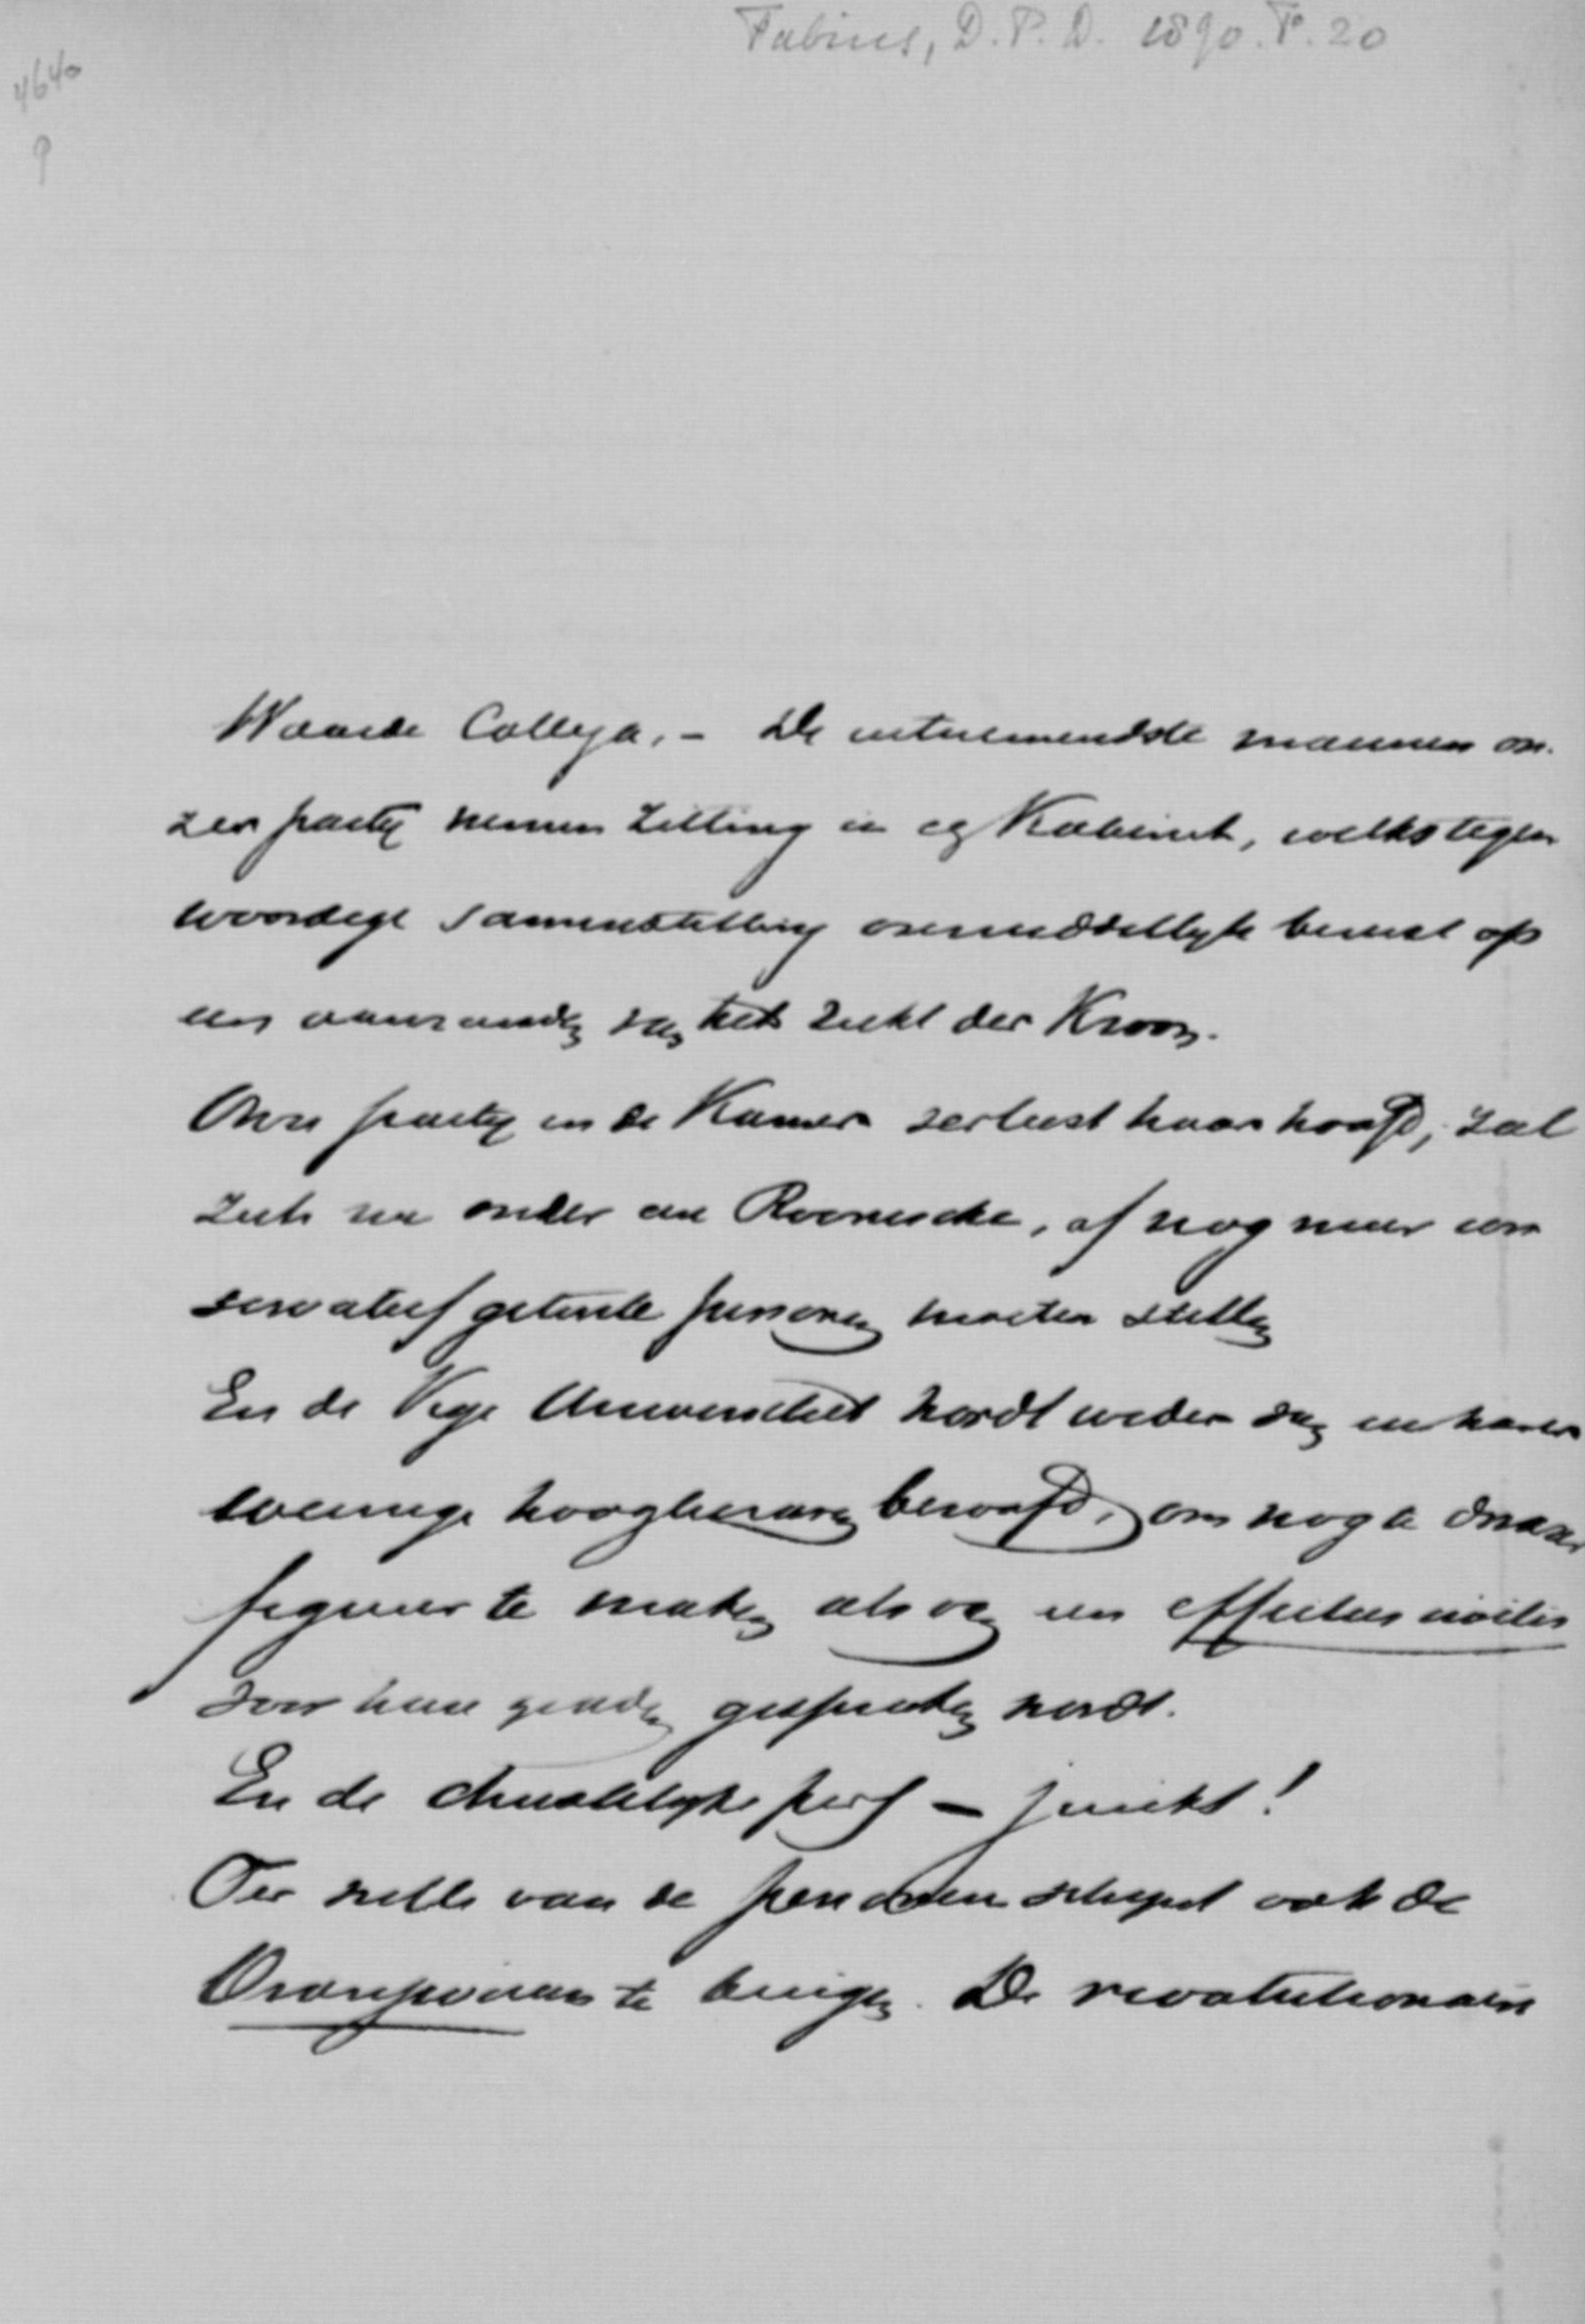 Fabius, D.P.D. 1890. P. 20
4640
9
Waarde Collega, - De uitnemendste mannen on-
zer partij nemen zitting in Kabinet, welks tegen
woordige samenstelling onmiddellijk berust op
aanranding het der Kroon.
Onze partij in de Kamer verliest haar hoofd; zal
zich nu onder een Roomsche, of nog meer con
servatief getinte personen moeten stellen
En de Vrije Universiteit wordt weder van een harer
weinige hoogleeraren beroofd, om nog te
figuur te maken als er een effectus civilis
voor hare graden gesproken wordt.
En de christelijke pers - juicht!
Ter wille van de personen schijnt ook de
te buigen. De revolutionaire